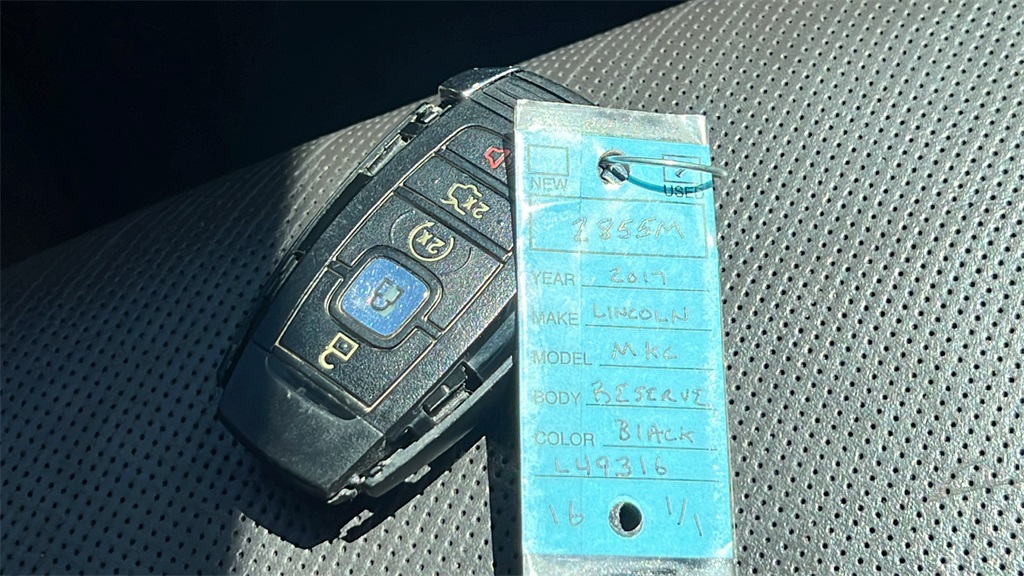 NEW USED
2855M
YEAR 2017
MAKE LINCOLN
MODEL MKC
BODY RESERVE
COLOR BLACK
L49316
16 1/1
2x
(2x)